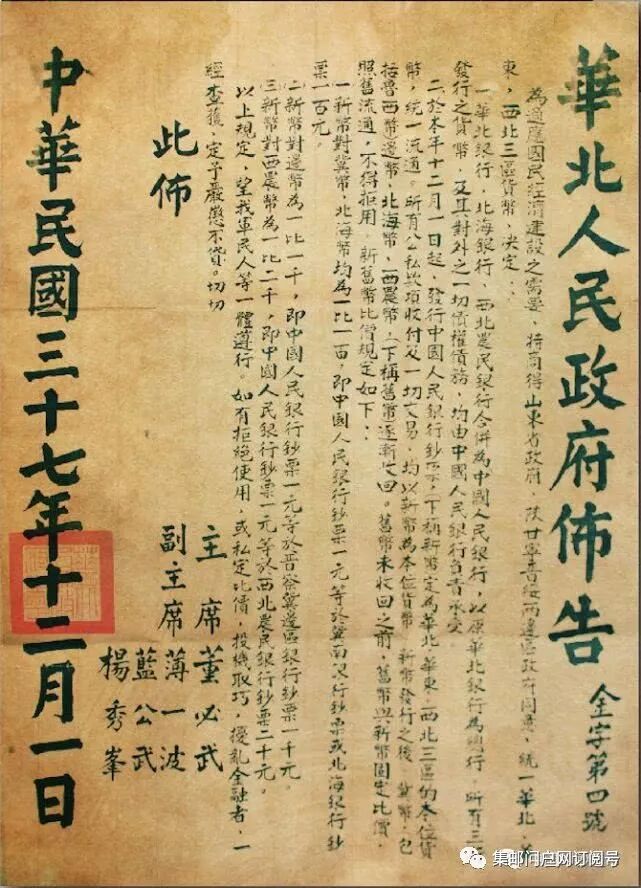 華北人民政府佈告
金字第四號
為適應國民經濟建設之需要,特商得山東省政府,陝甘寧晋綏兩邊區政府同意,統一華北,華
東,西北三區貨幣,決定:
一,華北銀行,北海銀行,西北農民銀行合併為中國人民銀行,以原華北銀行為總行。所有三行
發行之貨幣,及其對外之一切債權債務,均由中國人民銀行負責承受。
二,於本年十二月一日起,發行中國人民銀行鈔票(下稱新幣)定為華北,華東,西北三區的本位貨
幣,統一流通。所有公私款項收付及一切交易,均以新幣為本位貨幣。新幣發行之後,冀幣(包
括魯西幣)邊幣,北海幣,西農幣(下稱舊幣)逐漸收回。舊幣未收回之前,舊幣與新幣固定比價,
照舊流通,不得拒用。新舊幣比價規定如下:
一新幣對冀幣,北海幣均為一比一百,即中國人民銀行鈔票一元等於冀南銀行鈔票或北海銀行鈔
票一百元。
二新幣對邊幣為一比一千,即中國人民銀行鈔票一元等於晋察冀邊區銀行鈔票一千元。
三新幣對西農幣為一比二千,即中國人民銀行鈔票一元等於西北農民銀行鈔票二十元。
以上規定,望我軍民人等一體遵行。如有拒絕使用,或私定比價,投機取巧,擾亂金融者,一
經查獲,定予嚴懲不貸。切切
此佈
主席 董必武
副主席 薄一波
藍公武
楊秀峯
中華民國三十七年十二月一日
集邮门户网订阅号